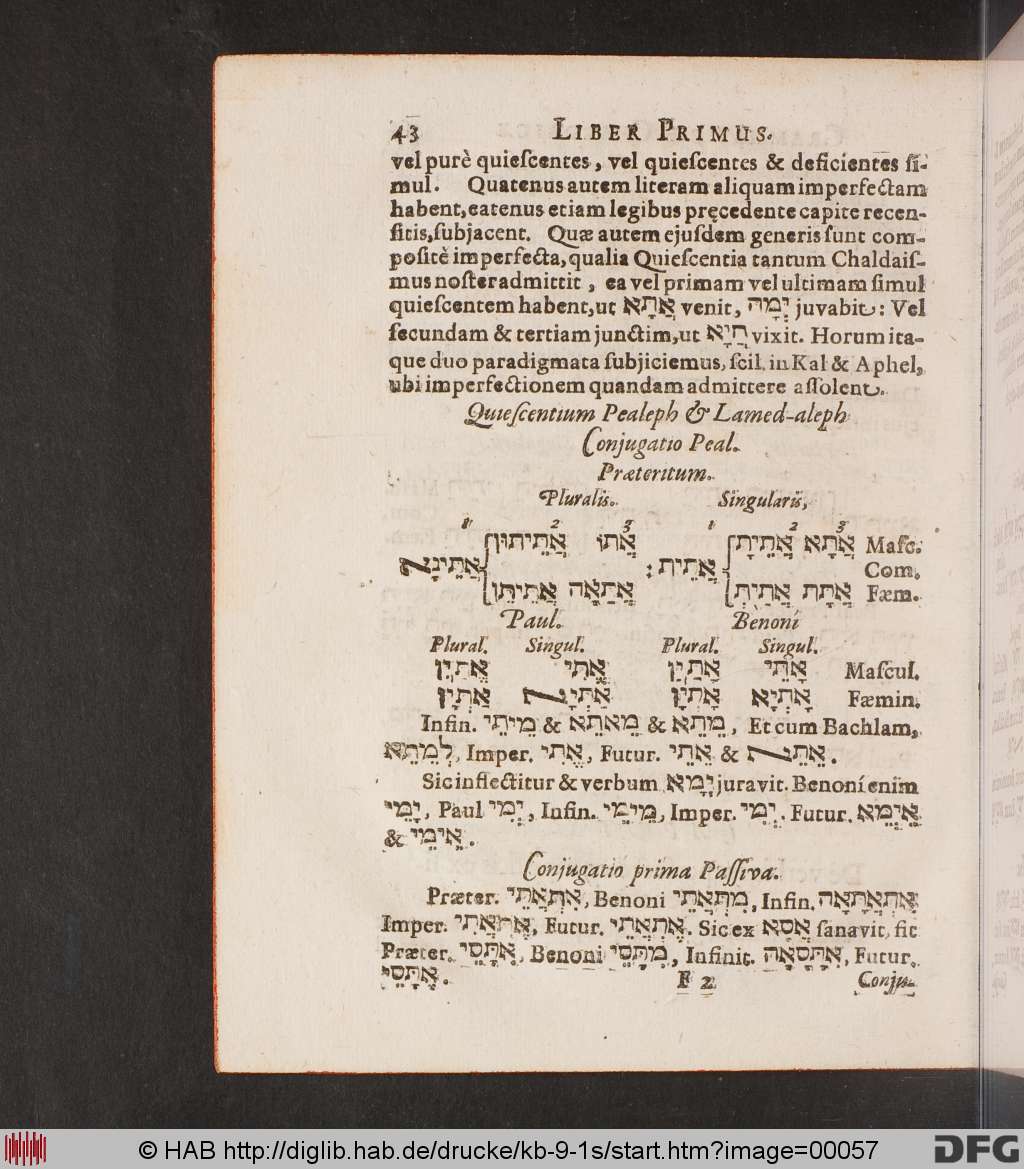 43 LIBER PRIMUS.
vel purè quieſcentes, vel quieſcentes & deficientes ſi-
mul. Quatenus autem literam aliquam imperfectam
habent, eatenus etiam legibus pręcedente capite recen-
ſitis, ſubjacent. Quæ autem ejuſdem generis ſunt com-
poſitè imperfecta, qualia Quieſcentia tantum Chaldaiſ-
mus noſter admittit, ea vel primam vel ultimam ſimul
quieſcentem habent, ut אֲתָא venit, יְמָה juvabit: Vel
ſecundam & tertiam junctim, ut חֲיָא vixit. Horum ita-
que duo paradigmata ſubjiciemus, ſcil. in Kal & Aphel,
ubi imperfectionem quandam admittere aſſolent.
Quieſcentium Pealeph & Lamed-aleph
Conjugatio Peal.
Præteritum.
Pluralis. Singularis,
1 2 3 1 2 3
אֲתוֹ אֲתֵיתוּן אֲתָא אֲתֵיתָ Maſc.
אֲתֵינָא : אֲתֵית Com.
אֲתַאָה אֲתֵיתֵן אֲתָת אֲתַיִת Fæm.
Paul. Benoni
Plural. Singul. Plural. Singul.
אֱתַיִן אֱתִי אָתַיִן אָתֵי Maſcul.
אַתְיָן אַתְיָא אָתְיָן אָתְיָא Fæmin.
Infin. מֵיתֵי & מֵאתֵא & מֵתֵא, Et cum Bachlam,
לְמֵתֵא, Imper. אֱתִי, Futur. אֵתֵי & אֵתֵא.
Sic inflectitur & verbum יְמָא juravit. Benoní enim
יָמֵי, Paul יְמִי, Infin. מֵימֵי, Imper. יְמִי. Futur. אֵימֵא
& אֵימֵי.
Conjugatio prima Paſſiva.
Præter. אִתְאֲתִי, Benoni מִתְאֲתֵי, Infin. אִתְאֲתָאָה
Imper. אֶתְאֲתִי, Futur. אֶתְאֲתֵי. Sic ex אֲסָא ſanavit, ſic
Præter. אִתְּסֵי, Benoni מִתְּסֵי, Infinit. אִתְּסָאָה, Futur.
אֶתְּסֵי. F 2 Conju-
© HAB http://diglib.hab.de/drucke/kb-9-1s/start.htm?image=00057 DFG